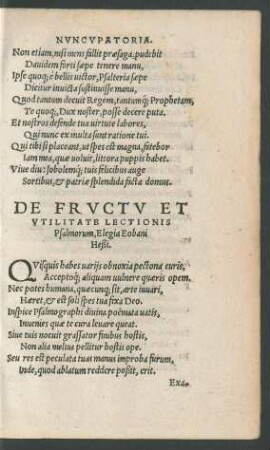 NVNCVPATORIA.
Non etiam, nisi mens fallit præsaga, pudebit
Dauidem forti sæpe tenere manu,
Ipse quoq; è bellis uictor, Psalteria sæpe
Dicitur inuicta sustinuisse manu.
Quod tantum decuit Regem, tantumq; Prophetam,
Te quoq;, Dux noster, posse decere puta.
Et nostros defende tua uirtute labores,
Qui nunc ex multa sunt ratione tui.
Qui tibi si placeant, ut spes est magna, fatebor
Iam mea, quæ uoluit, littora puppis habet.
Viue diu: sobolemq; tuis felicibus auge
Sortibus, & patriæ splendida facta domus.
DE FRVCTV ET
VTILITATE LECTIONIS
Psalmorum, Elegia Eobani
Hessi.
QVisquis habes uarijs obnoxia pectora curis,
Acceptoq; aliquam uulnere quæris opem.
Nec potes humana, quæcunq; sit, arte iuuari,
Hæret, & est soli spes tua fixa Deo.
Inspice Psalmographi diuina poëmata uatis,
Inuenies quæ te cura leuare queat.
Siue tuis nocuit grassator finibus hostis,
Non alia melius pellitur hostis ope.
Seu res est peculata tuas manus improba furum,
Inde, quod ablatum reddere possit, erit.
Exa-